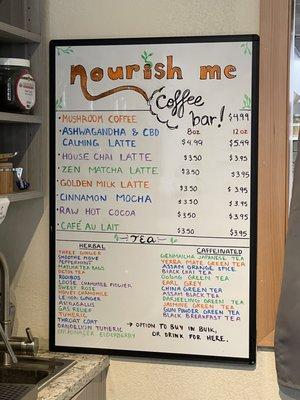 nourish me
Coffee bar!
• MUSHROOM COFFEE $4.99
8oz 12oz
• ASHWAGANDHA & CBD CALMING LATTE $4.99 $5.99
• HOUSE CHAI LATTE $3.50 $3.95
• ZEN MATCHA LATTE $3.50 $3.95
• GOLDEN MILK LATTE $3.50 $3.95
• CINNAMON MOCHA $3.50 $3.95
• RAW HOT COCOA $3.50 $3.95
• CAFÉ AU LAIT $3.50 $3.95
TEA
HERBAL
THREE GINGER
SMOOTH MOVE
PEPPERMINT
DETOX TEA
ROOIBOS
LOOSE CHAMOMILE FLOWER
SWEET ROSE
HONEY CHAMOMILE
LEMON GINGER
ASTRAGALUS
GAS RELIEF
TURMERIC
THROAT COAT
DANDELION TUMERIC
ECHINACEA ELDERBERRY
CAFFEINATED
GENMAICHA JAPANESE TEA
YERBA MATE GREEN TEA
ASSAM ORANGE SPICE
BLACK CHAI TEA
OOLONG GREEN TEA
EARL GREY
CHINA GREEN TEA
ASSAM BLACK TEA
DARJEELING GREEN TEA
JASMINE GREEN TEA
GUN POWDER GREEN TEA
BLACK BREAKFAST TEA
→ OPTION TO BUY IN BULK,
OR DRINK FOR HERE.